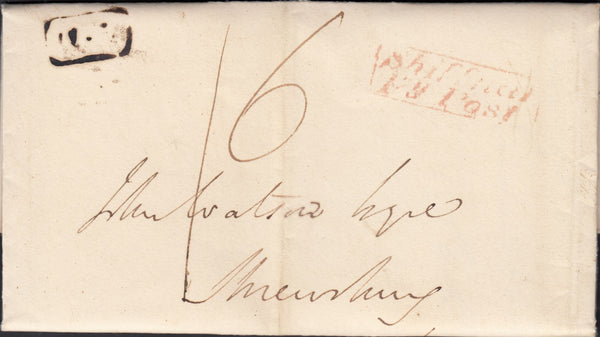 16
Shiffnal
Py Post
John Watson Esqre
Shrewsbury